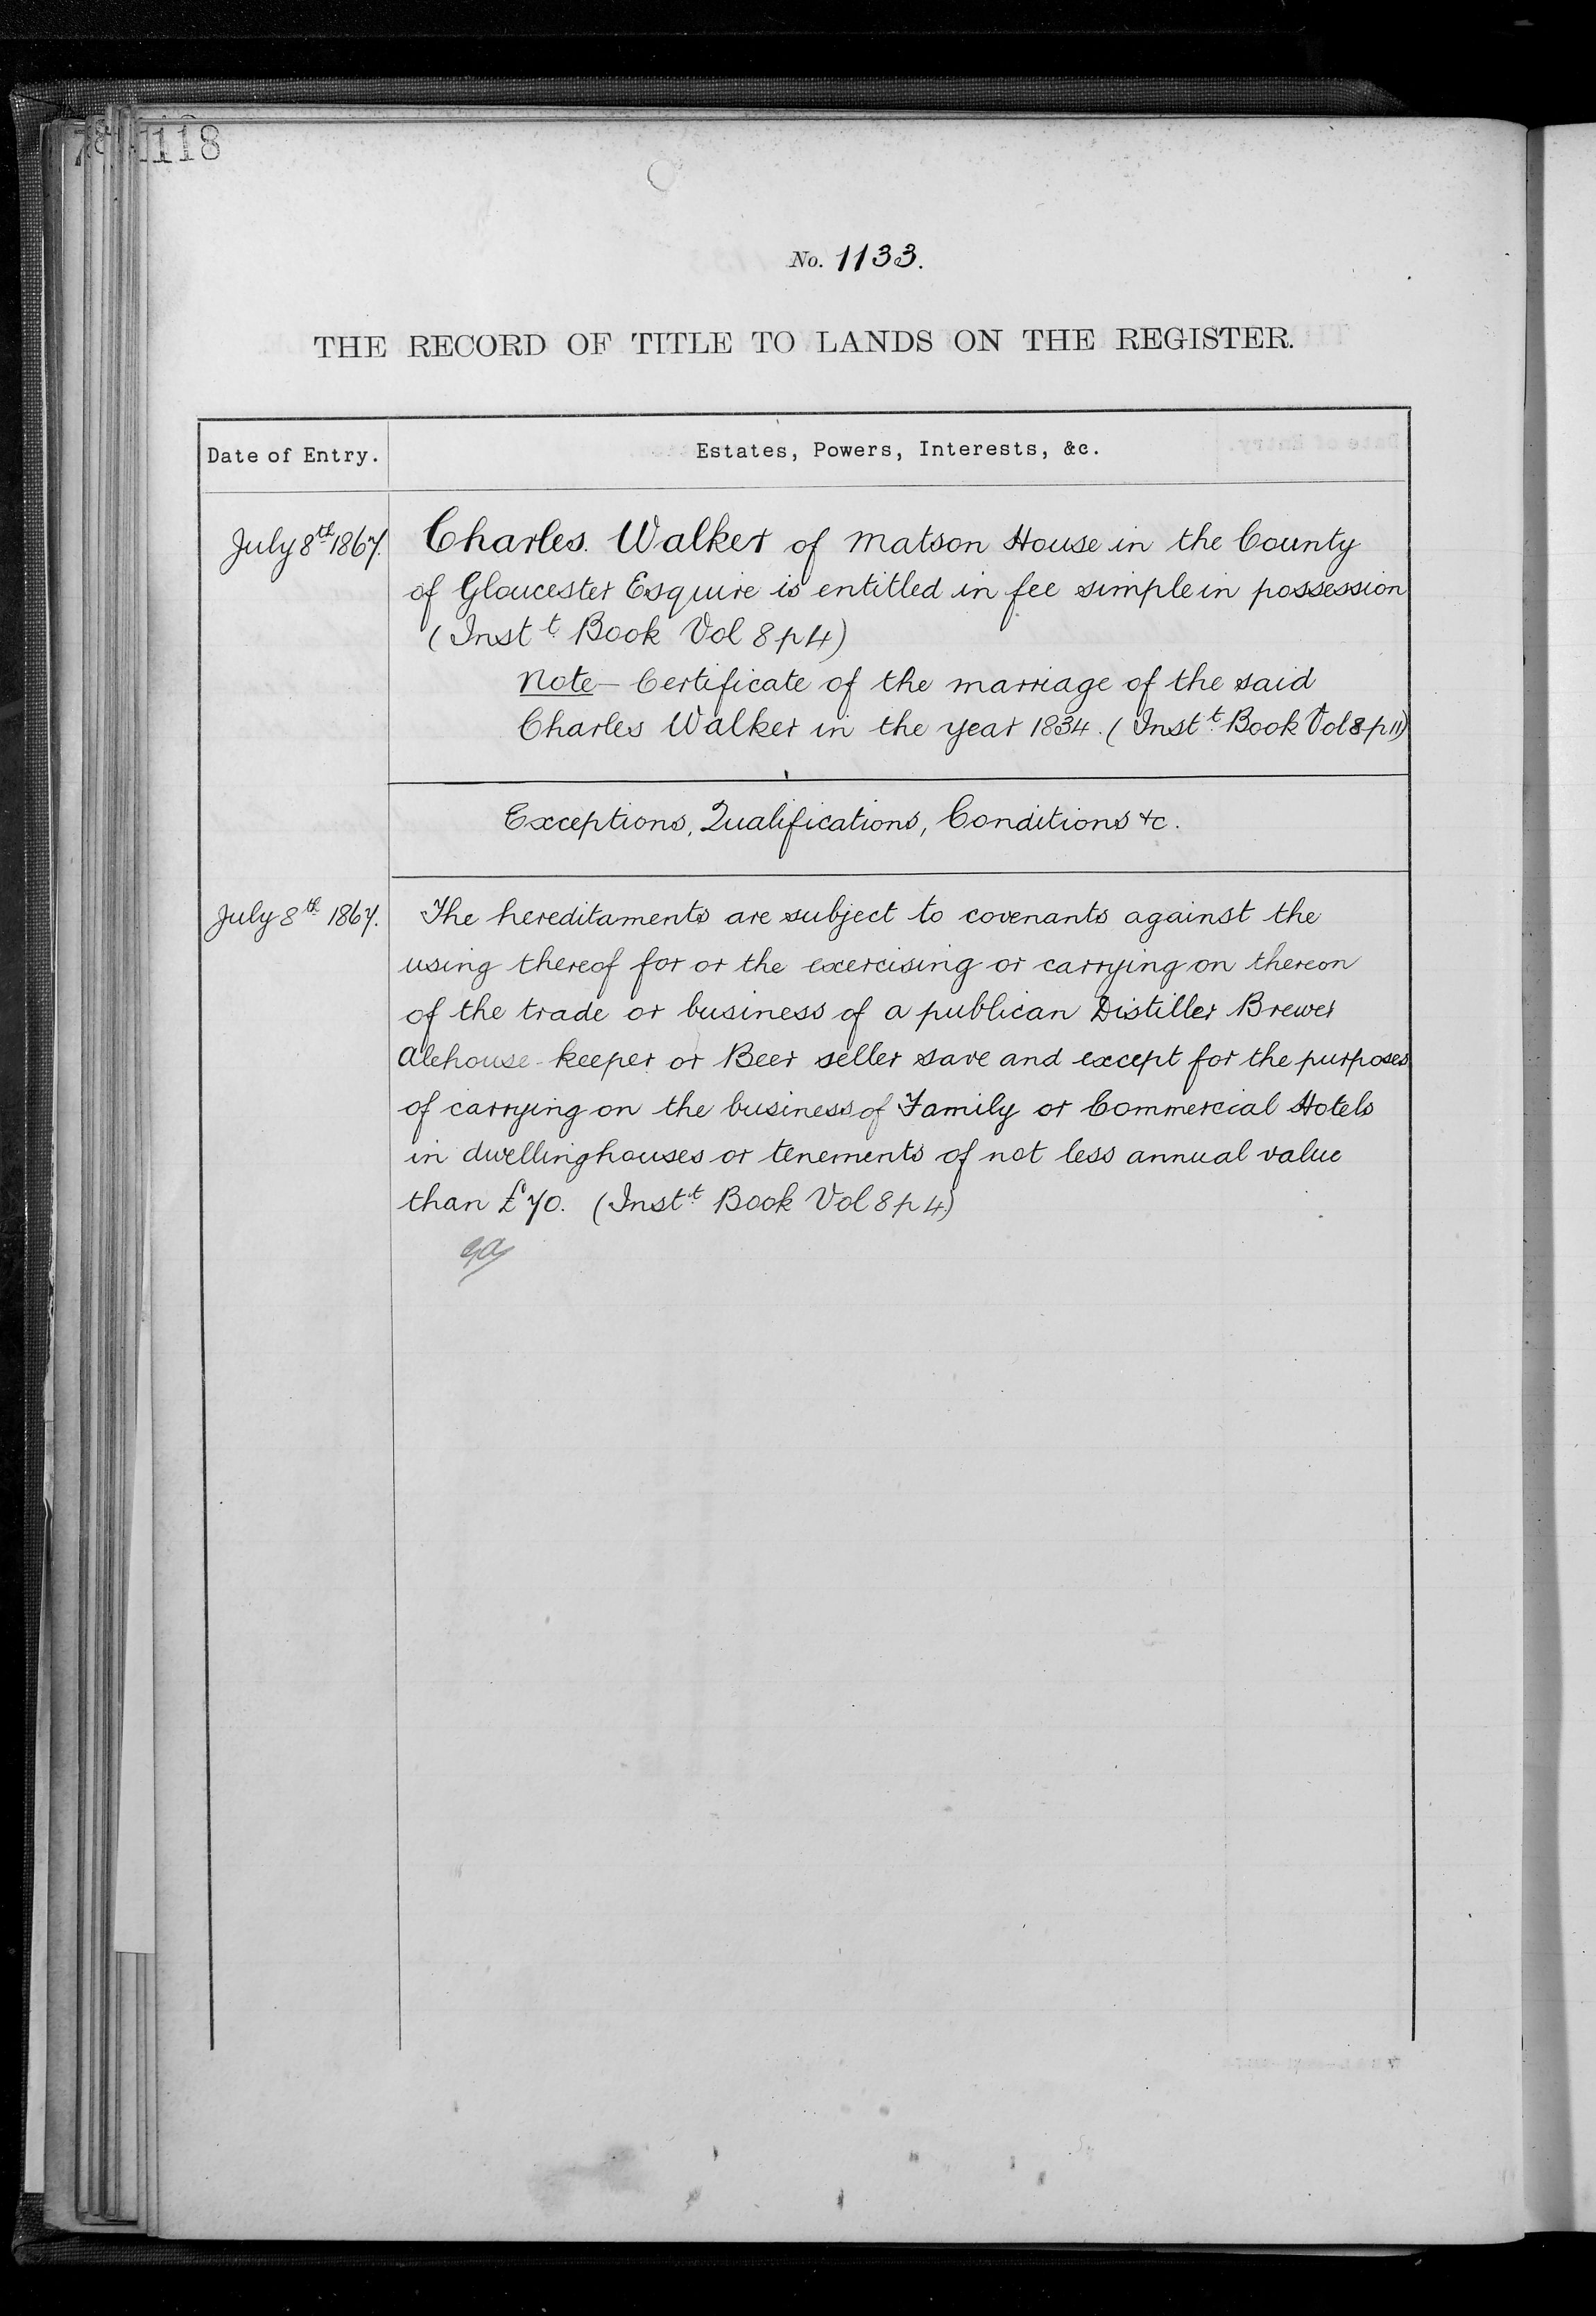 118
No. 1133.
THE RECORD OF TITLE TO LANDS ON THE REGISTER.
Date of Entry.
Estates, Powers, Interests, &c.
July 8th 1867.
Charles. Walker of Matson House in the County
of Gloucester Esquire is entitled in fee simple in possession
(Instt Book Vol 8 p 4)
Note — Certificate of the marriage of the said
Charles Walker in the year 1834. (Instt Book Vol 8 p 11)
Exceptions, Qualifications, Conditions &c.
July 8th 1867.
The hereditaments are subject to covenants against the
using thereof for or the exercising or carrying on thereon
of the trade or business of a publican Distiller Brewer
Alehouse-keeper or Beer seller save and except for the purposes
of carrying on the business of Family or Commercial Hotels
in dwellinghouses or tenements of not less annual value
than £70. (Instt Book Vol 8 p 4)